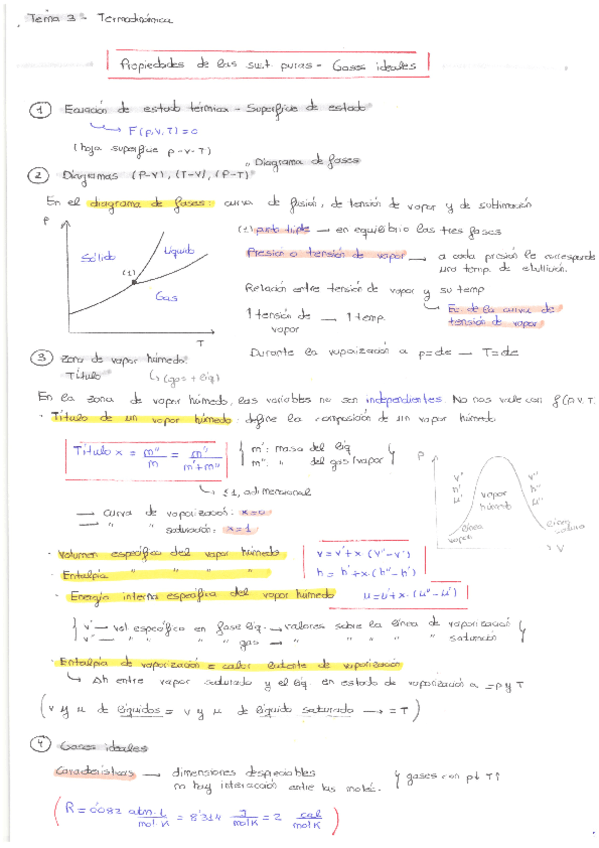 Tema 3 - Termodinámica
Propiedades de las sust. puras - Gases ideales
1 Ecuación de estado térmica - Superficie de estado
F(p,v,T) = 0
(hoja superficie p-v-T)
2 Diagramas (P-V), (T-V), (P-T) "Diagrama de fases
En el diagrama de fases: curva de fusión, de tensión de vapor y de sublimación
P
Sólido
Líquido
(t)
Gas
T
(t) punto triple → en equilibrio las tres fases
Presión o tensión de vapor → a cada presión le corresponde
una temp. de ebullición.
Relación entre tensión de vapor y su temp
Ec. de la curva de
tensión de vapor
1 tensión de → 1 temp.
vapor
Durante la vaporización a p=cte → T=cte
3 Zona de vapor húmedo.
Título (gas + líq)
En la zona de vapor húmedo, las variables no son independientes. No nos vale con f(p,v,T
· Título de un vapor húmedo: define la composición de un vapor húmedo
Título x = m''/m = m''/m'+m''
m': masa del líq
m'': " del gas/vapor
≤1, adimensional
→ curva de vaporización: x=0
→ " " saturación: x=1
P
v' h' u'
vapor húmedo
v'' h'' u''
línea
V
· Volumen específico del vapor húmedo v = v' + x·(v''-v')
· Entalpía " " " " h = h' + x·(h''-h')
· Energía interna específica del vapor húmedo u = u' + x·(u''-u')
v' → vol. específico en fase líq. → valores sobre la línea de vaporización
v'' → " " " " gas → " " " " saturación
· Entalpía de vaporización = calor latente de vaporización
↳ Δh entre vapor saturado y el líq en estado de vaporización a = p y T
(v y u de líquidos = v y u de líquido saturado → = T)
4 Gases ideales
Características → dimensiones despreciables
no hay interacción entre las moléc.
y gases con p↓ T↑
(R = 0'082 atm·l/mol·K = 8'314 J/mol·K = 2 cal/mol·K)